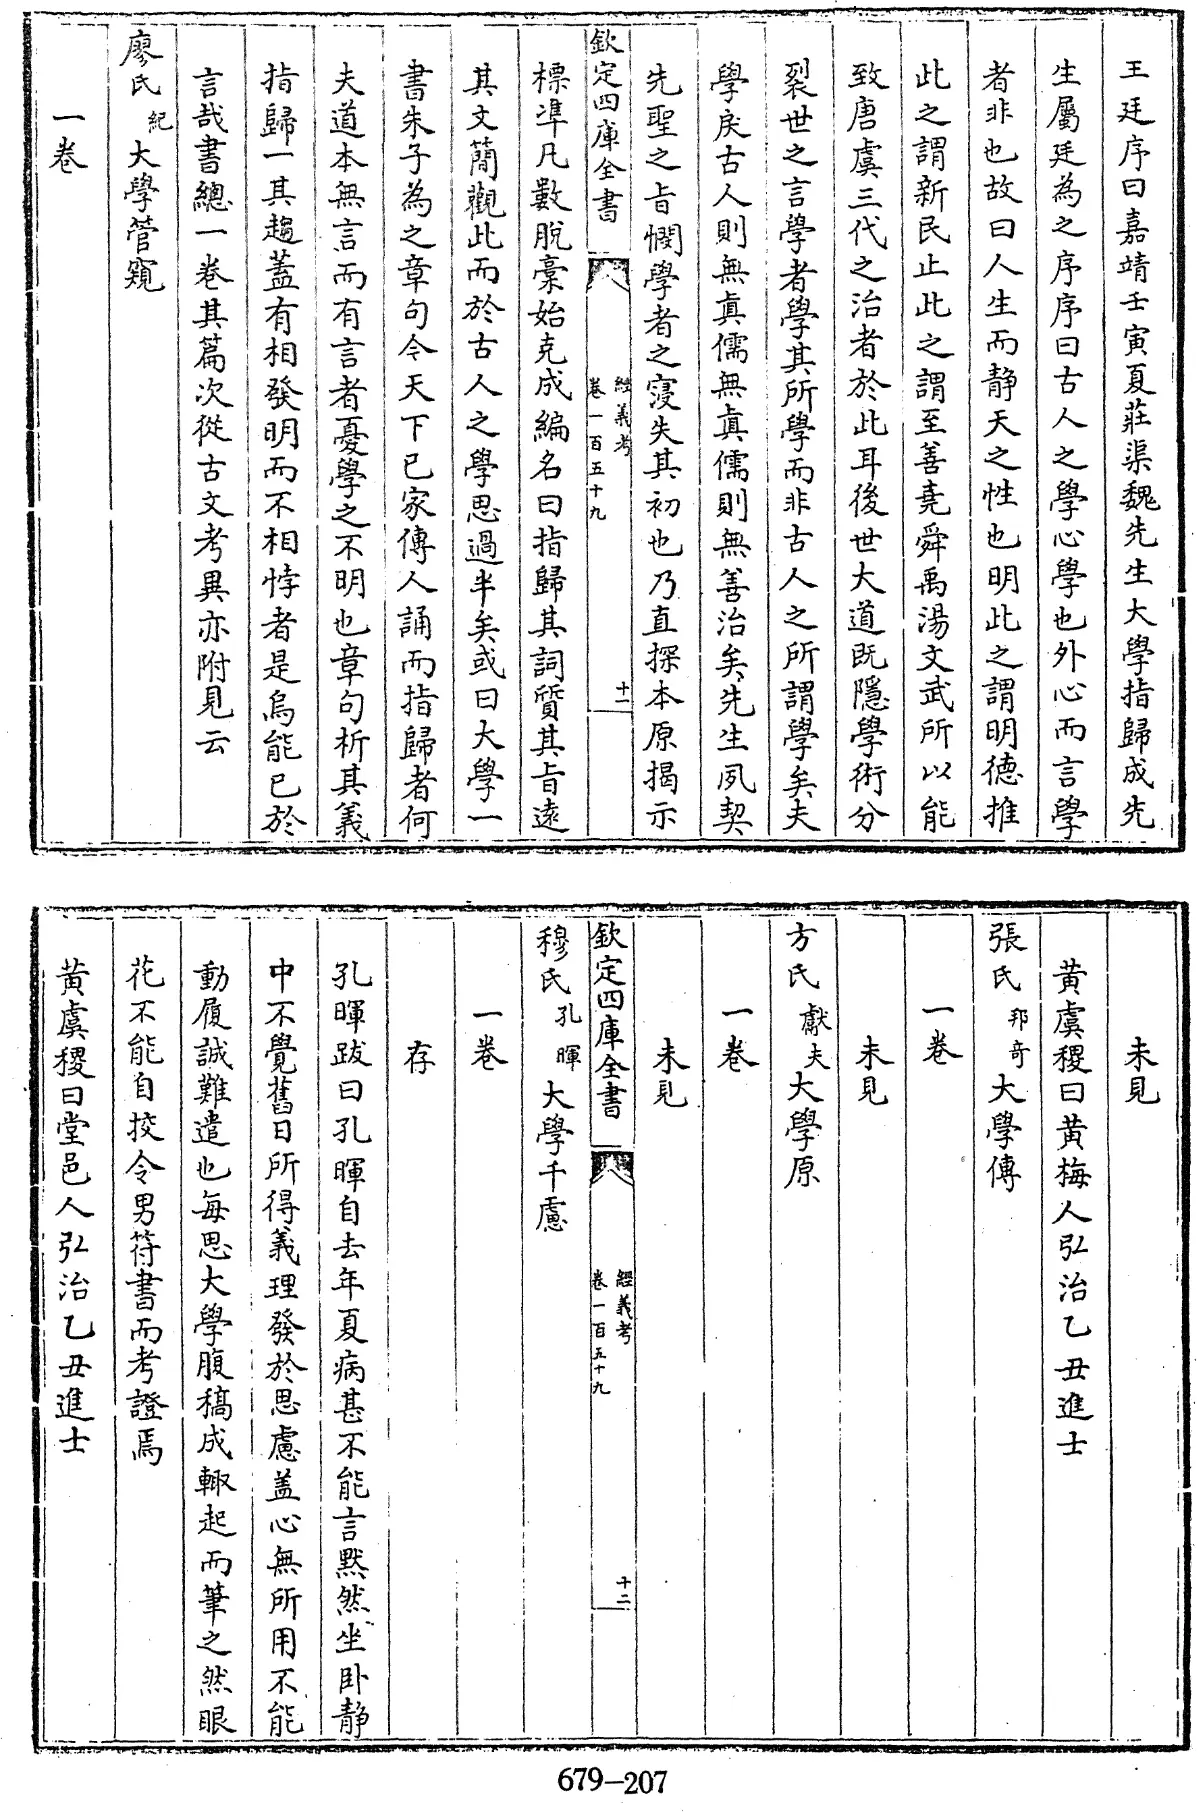 王廷序曰嘉靖壬寅夏莊渠魏先生大學指歸成先
生屬廷為之序序曰古人之學心學也外心而言學
者非也故曰人生而静天之性也明此之謂明德推
此之謂新民止此之謂至善堯舜禹湯文武所以能
致唐虞三代之治者於此耳後世大道既隱學術分
裂世之言學者學其所學而非古人之所謂學矣夫
學戾古人則無真儒無真儒則無善治矣先生夙契
先聖之旨憫學者之寖失其初也乃直探本原揭示
欽定四庫全書
經義考
卷一百五十九
十一
標準凡數脫稾始克成編名曰指歸其詞質其旨遠
其文簡觀此而於古人之學思過半矣或曰大學一
書朱子為之章句今天下已家傳人誦而指歸者何
夫道本無言而有言者憂學之不明也章句析其義
指歸一其趨葢有相發明而不相悖者是烏能已於
言哉書總一卷其篇次從古文考異亦附見云
廖氏紀大學管窺
一卷
未見
黄虞稷曰黄梅人弘治乙丑進士
張氏邦奇大學傳
一卷
未見
方氏獻夫大學原
一卷
未見
欽定四庫全書
經義考
卷一百五十九
十二
穆氏孔暉大學千慮
一卷
存
孔暉跋曰孔暉自去年夏病甚不能言默然坐卧静
中不覺舊日所得義理發於思慮盖心無所用不能
動履誠難遣也每思大學腹稿成輙起而筆之然眼
花不能自挍令男符書而考證焉
黄虞稷曰堂邑人弘治乙丑進士
679-207